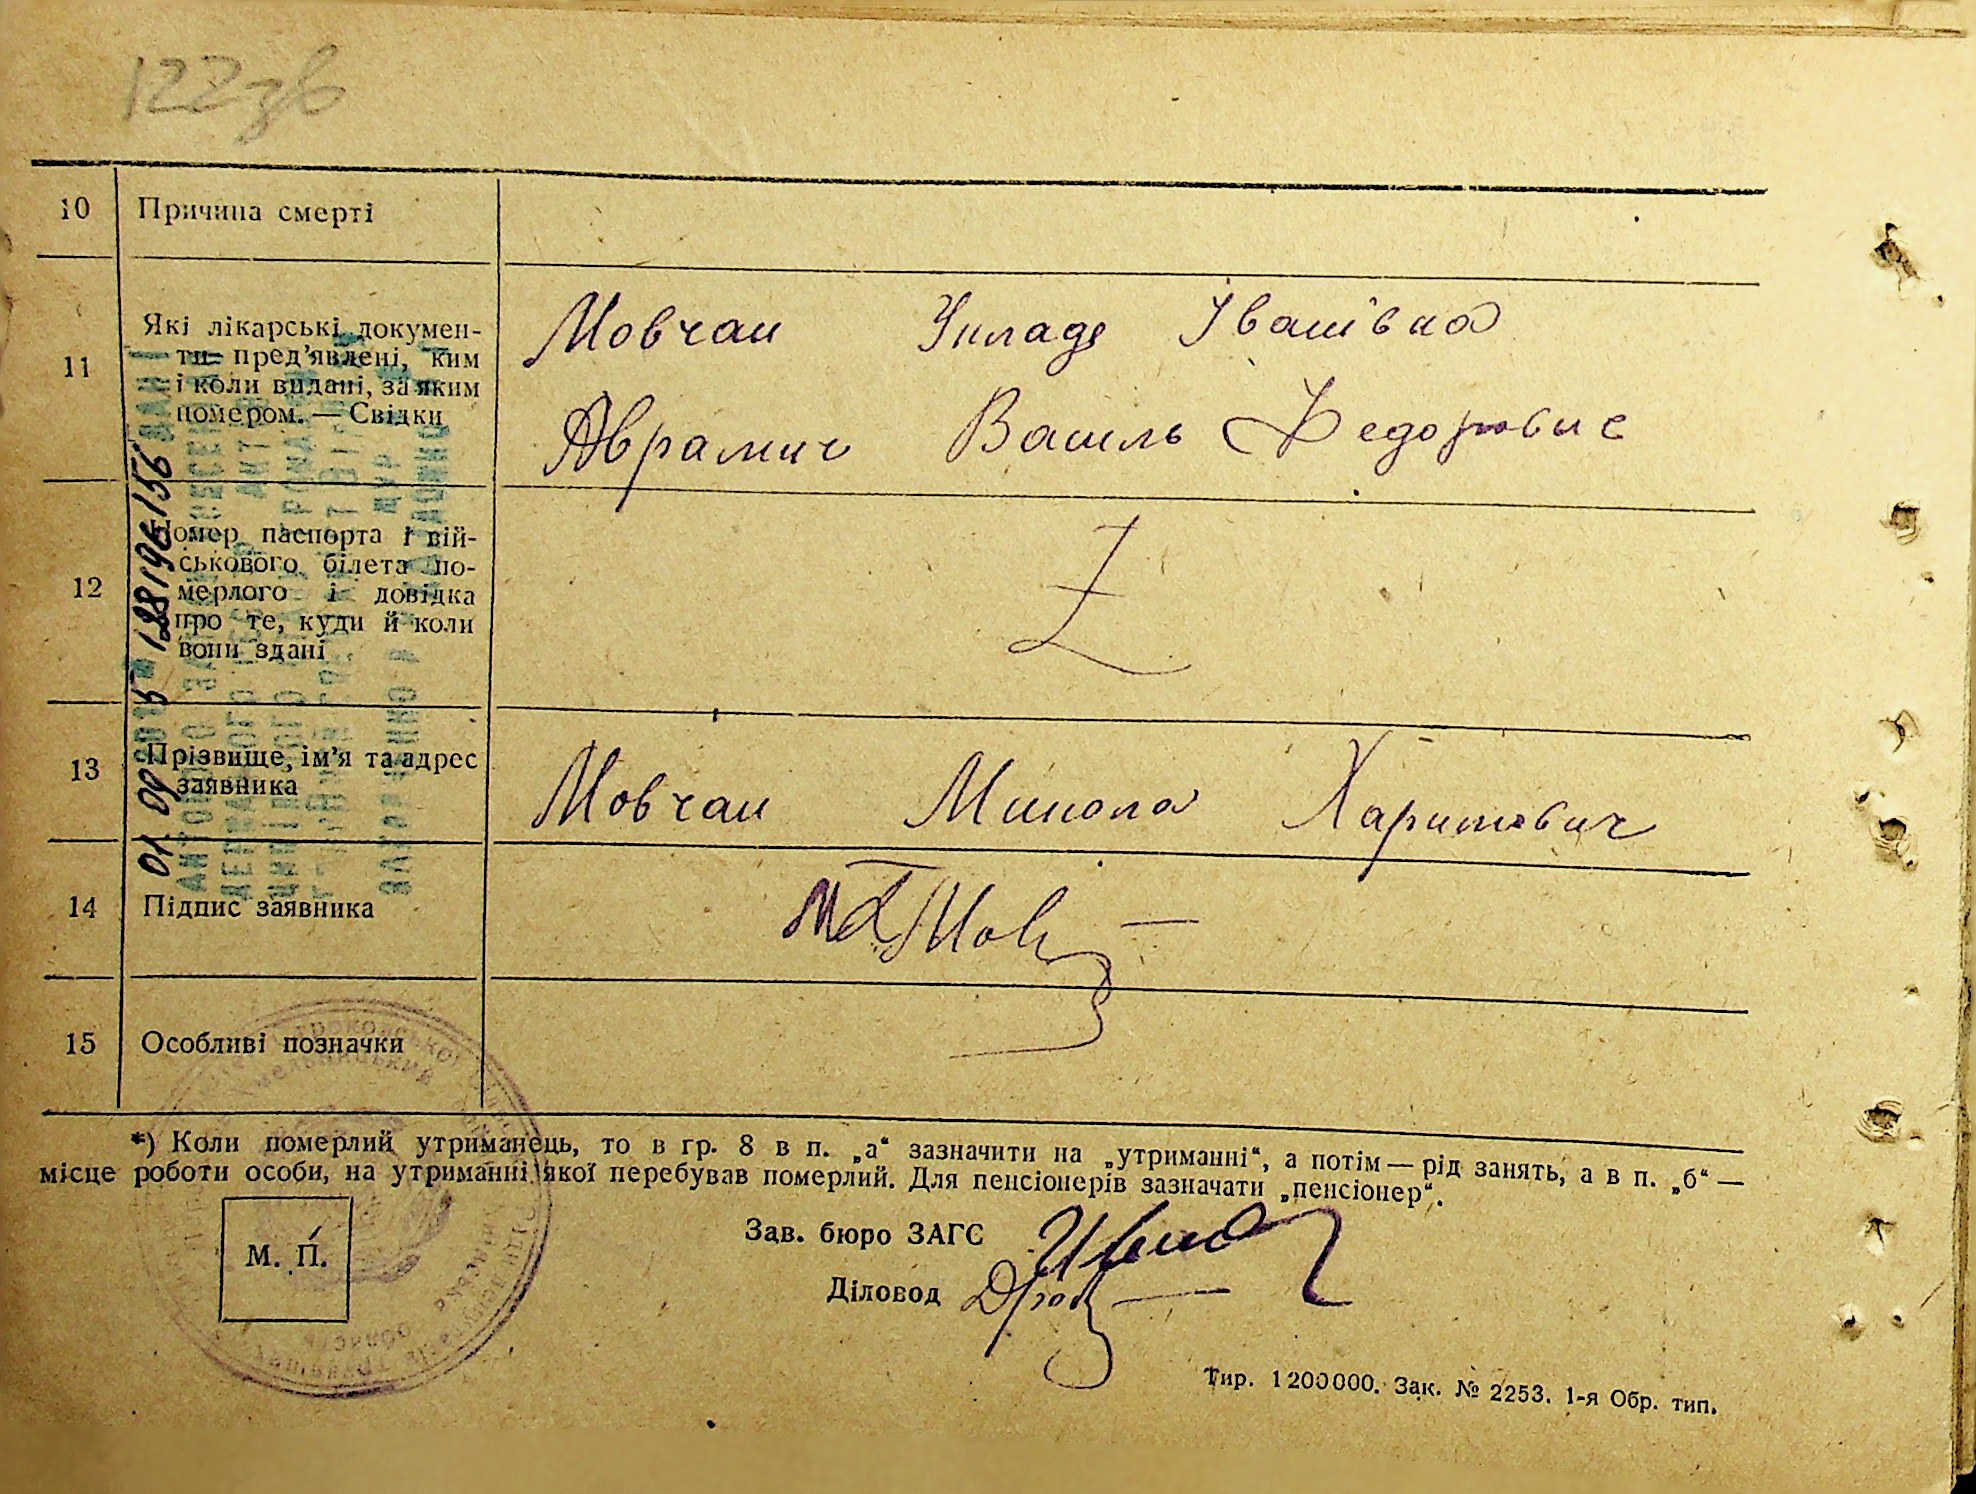 122зв
10 Причина смерті
11 Які лікарські докумен-
ти пред'явлені, ким
і коли видані, за яким
номером. — Свідки
Мовчан Улладе Іванівна
Аврамич Василь Федорович
12 Номер паспорта і вій-
ськового білета по-
мерлого і довідка
про те, куди й коли
вони здані
Z
13 Прізвище, ім'я та адрес
заявника
Мовчан Микола Харитович
14 Підпис заявника
15 Особливі позначки
*) Коли померлий утриманець, то в гр. 8 в п. „а“ зазначити на „утриманні“, а потім — рід занять, а в п. „б“ —
місце роботи особи, на утриманні якої перебував померлий. Для пенсіонерів зазначати „пенсіонер“.
М. П.
Зав. бюро ЗАГС
Діловод
Тир. 1200000. Зак. № 2253. 1-я Обр. тип.